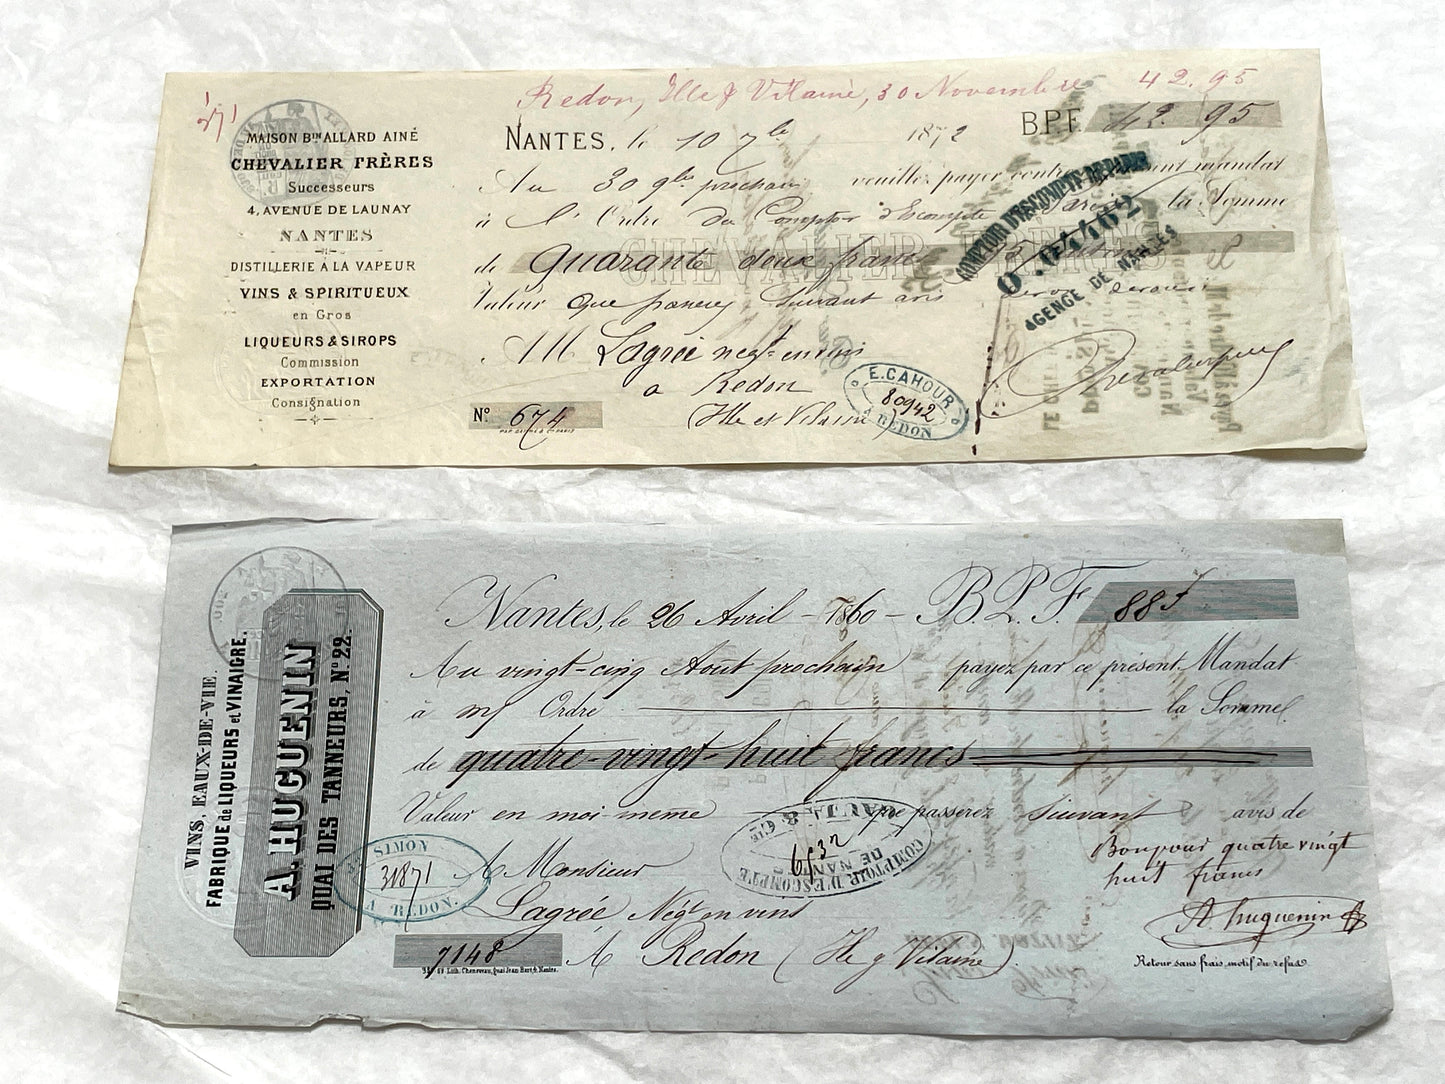 Redon, Ille & Vilaine, 30 Novembre 42.95
MAISON Bin ALLARD AINÉ
CHEVALIER FRÈRES
Successeurs
4, AVENUE DE LAUNAY
NANTES
DISTILLERIE A LA VAPEUR
VINS & SPIRITUEUX
en Gros
LIQUEURS & SIROPS
Commission
EXPORTATION
Consignation
NANTES, le 10 7bre 1872 B.P.F. 42.95
Au 30 9bre prochain veuillez payer contre mandat
à l'Ordre du Comptoir d'Escompte de Paris la Somme
CHEVALIER FRÈRES
de Quarante deux francs 95 centimes
Valeur que passerez suivant avis
M Lagrée negt en vins
a Redon
Ille et Vilaine
No. 674
E. CAHOUR
80942
A REDON
COMPTOIR D'ESCOMPTE DE PARIS
0.04462
AGENCE DE NANTES
VINS, EAUX-DE-VIE.
FABRIQUE de LIQUEURS et VINAIGRE.
A. HUGUENIN
QUAI DES TANNEURS, No. 22.
Nantes, le 26 Avril 1860 B.P.F. 88f
Au vingt-cinq Aout prochain payez par ce présent Mandat
à m/ Ordre la Somme
de quatre-vingt-huit francs
Valeur en moi-même que passerez suivant avis de
Bon pour quatre vingt
huit francs
A. huguenin
A Monsieur
Lagrée Négt en vins
A Redon (Ille & Vilaine)
7148
Lith. Cheneveau, Quai Jean Bart, 4, Nantes.
Retour sans frais, motif du refus
SIMON
31871
A REDON.
& Cie
6532
COMPTOIR D'ESCOMPTE
DE NANTES